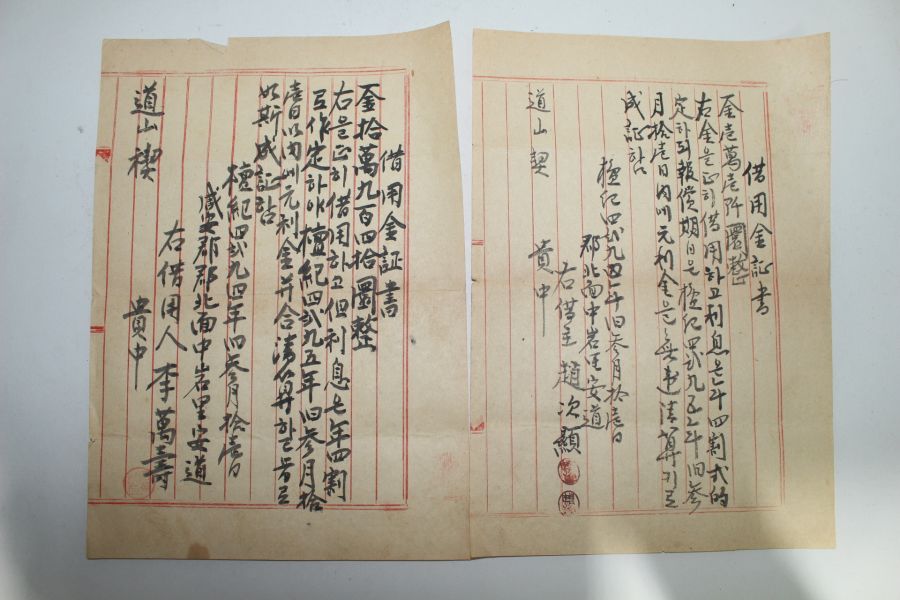 借用金証書
金壱萬壱阡圜整
右金을正히借用하고利息은年四割式的
定하되報償期日은檀紀四貳九五年旧參
月拾壱日內에元利金을無違淸算기로
成証함
檀紀四貳九四年旧參月拾壱日
郡北面中岩里安道
右借主 趙次顯
道山契 貴中
借用金証書
金拾萬九百四拾圜整
右을正히借用하고但利息은年四割
로作定하야檀紀四貳九五年旧參月拾
壱日以內에元利金并合淸算할事로
如斯成証함
檀紀四貳九四年旧參月拾壱日
咸安郡郡北面中岩里安道
右借用人 李萬壽
道山稧 貴中